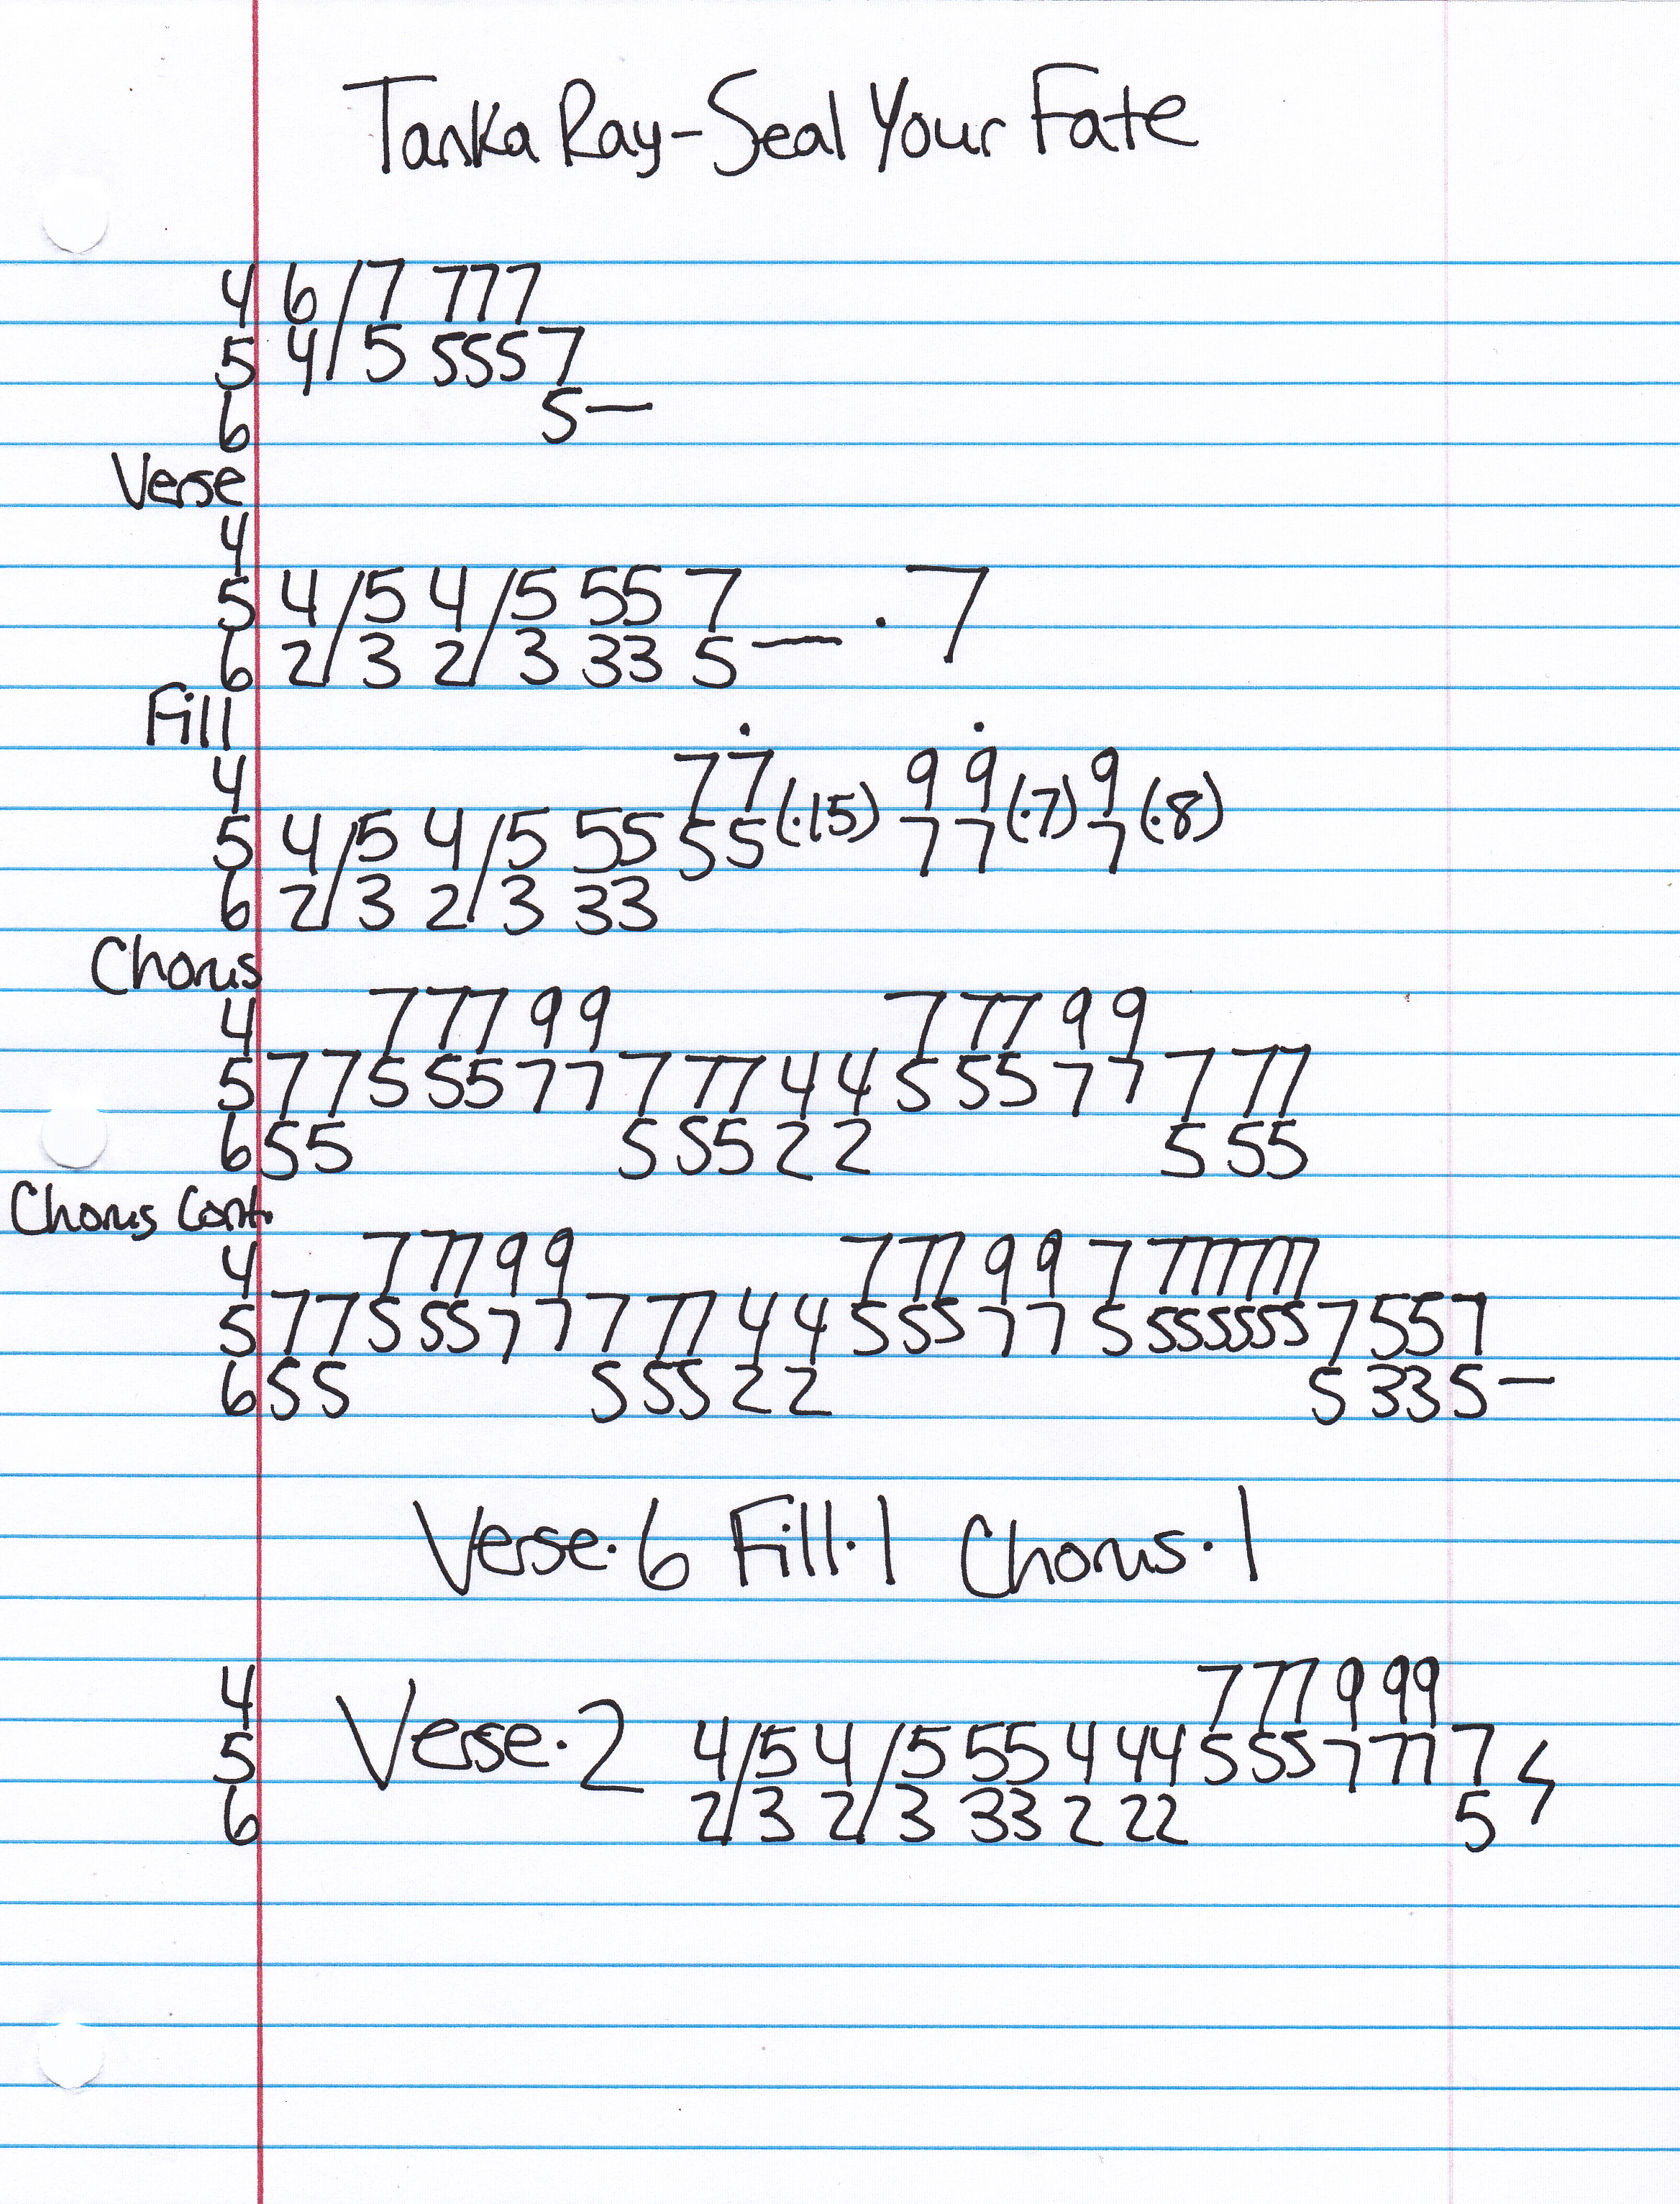 Tanka Ray-Seal Your Fate
4 6/7 777
5 4/5 5557
6 5—
Verse
4
5 4/5 4/5 55 7
6 2/3 2/3 33 5— · 7
Fill
4 77(·15) 99(·7) 9(·8)
5 4/5 4/5 55 55 77 7
6 2/3 2/3 33
Chorus
4 7 77 9 9 7 77 9 9
5 77 5 55 77 7 77 4 4 5 55 7 7 7 77
6 55 5 55 2 2 5 55
Chorus Cont.
4 7 77 9 9 7 77 9 9 7 77777
5 77 5 55 7 7 7 77 4 4 5 55 7 7 5 55555 7 55 7
6 55 5 55 2 2 5 33 5—
Verse·6 Fill·1 Chorus·1
4 7 77 9 99
5 Verse·2 4/5 4/5 55 4 44 5 55 7 77 7
6 2/3 2/3 33 2 22 5